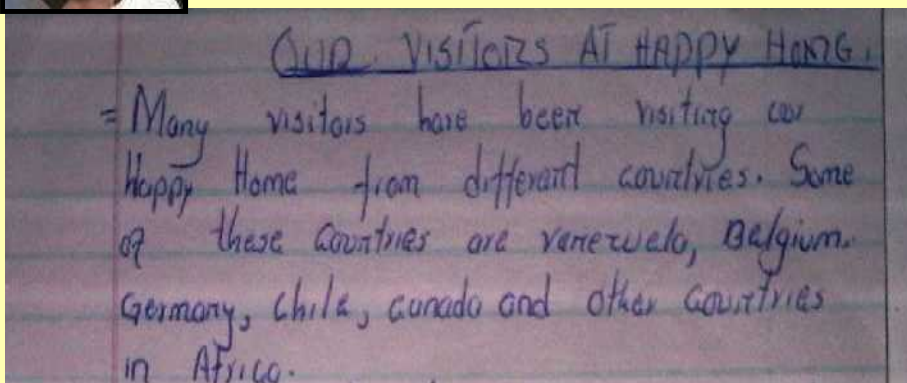 OUR VISITORS AT HAPPY HOME.
= Many visitors have been visiting our
Happy Home from different countries. Some
of these countries are venezuela, Belgium.
Germany, chile, canada and other countries
in Africa.